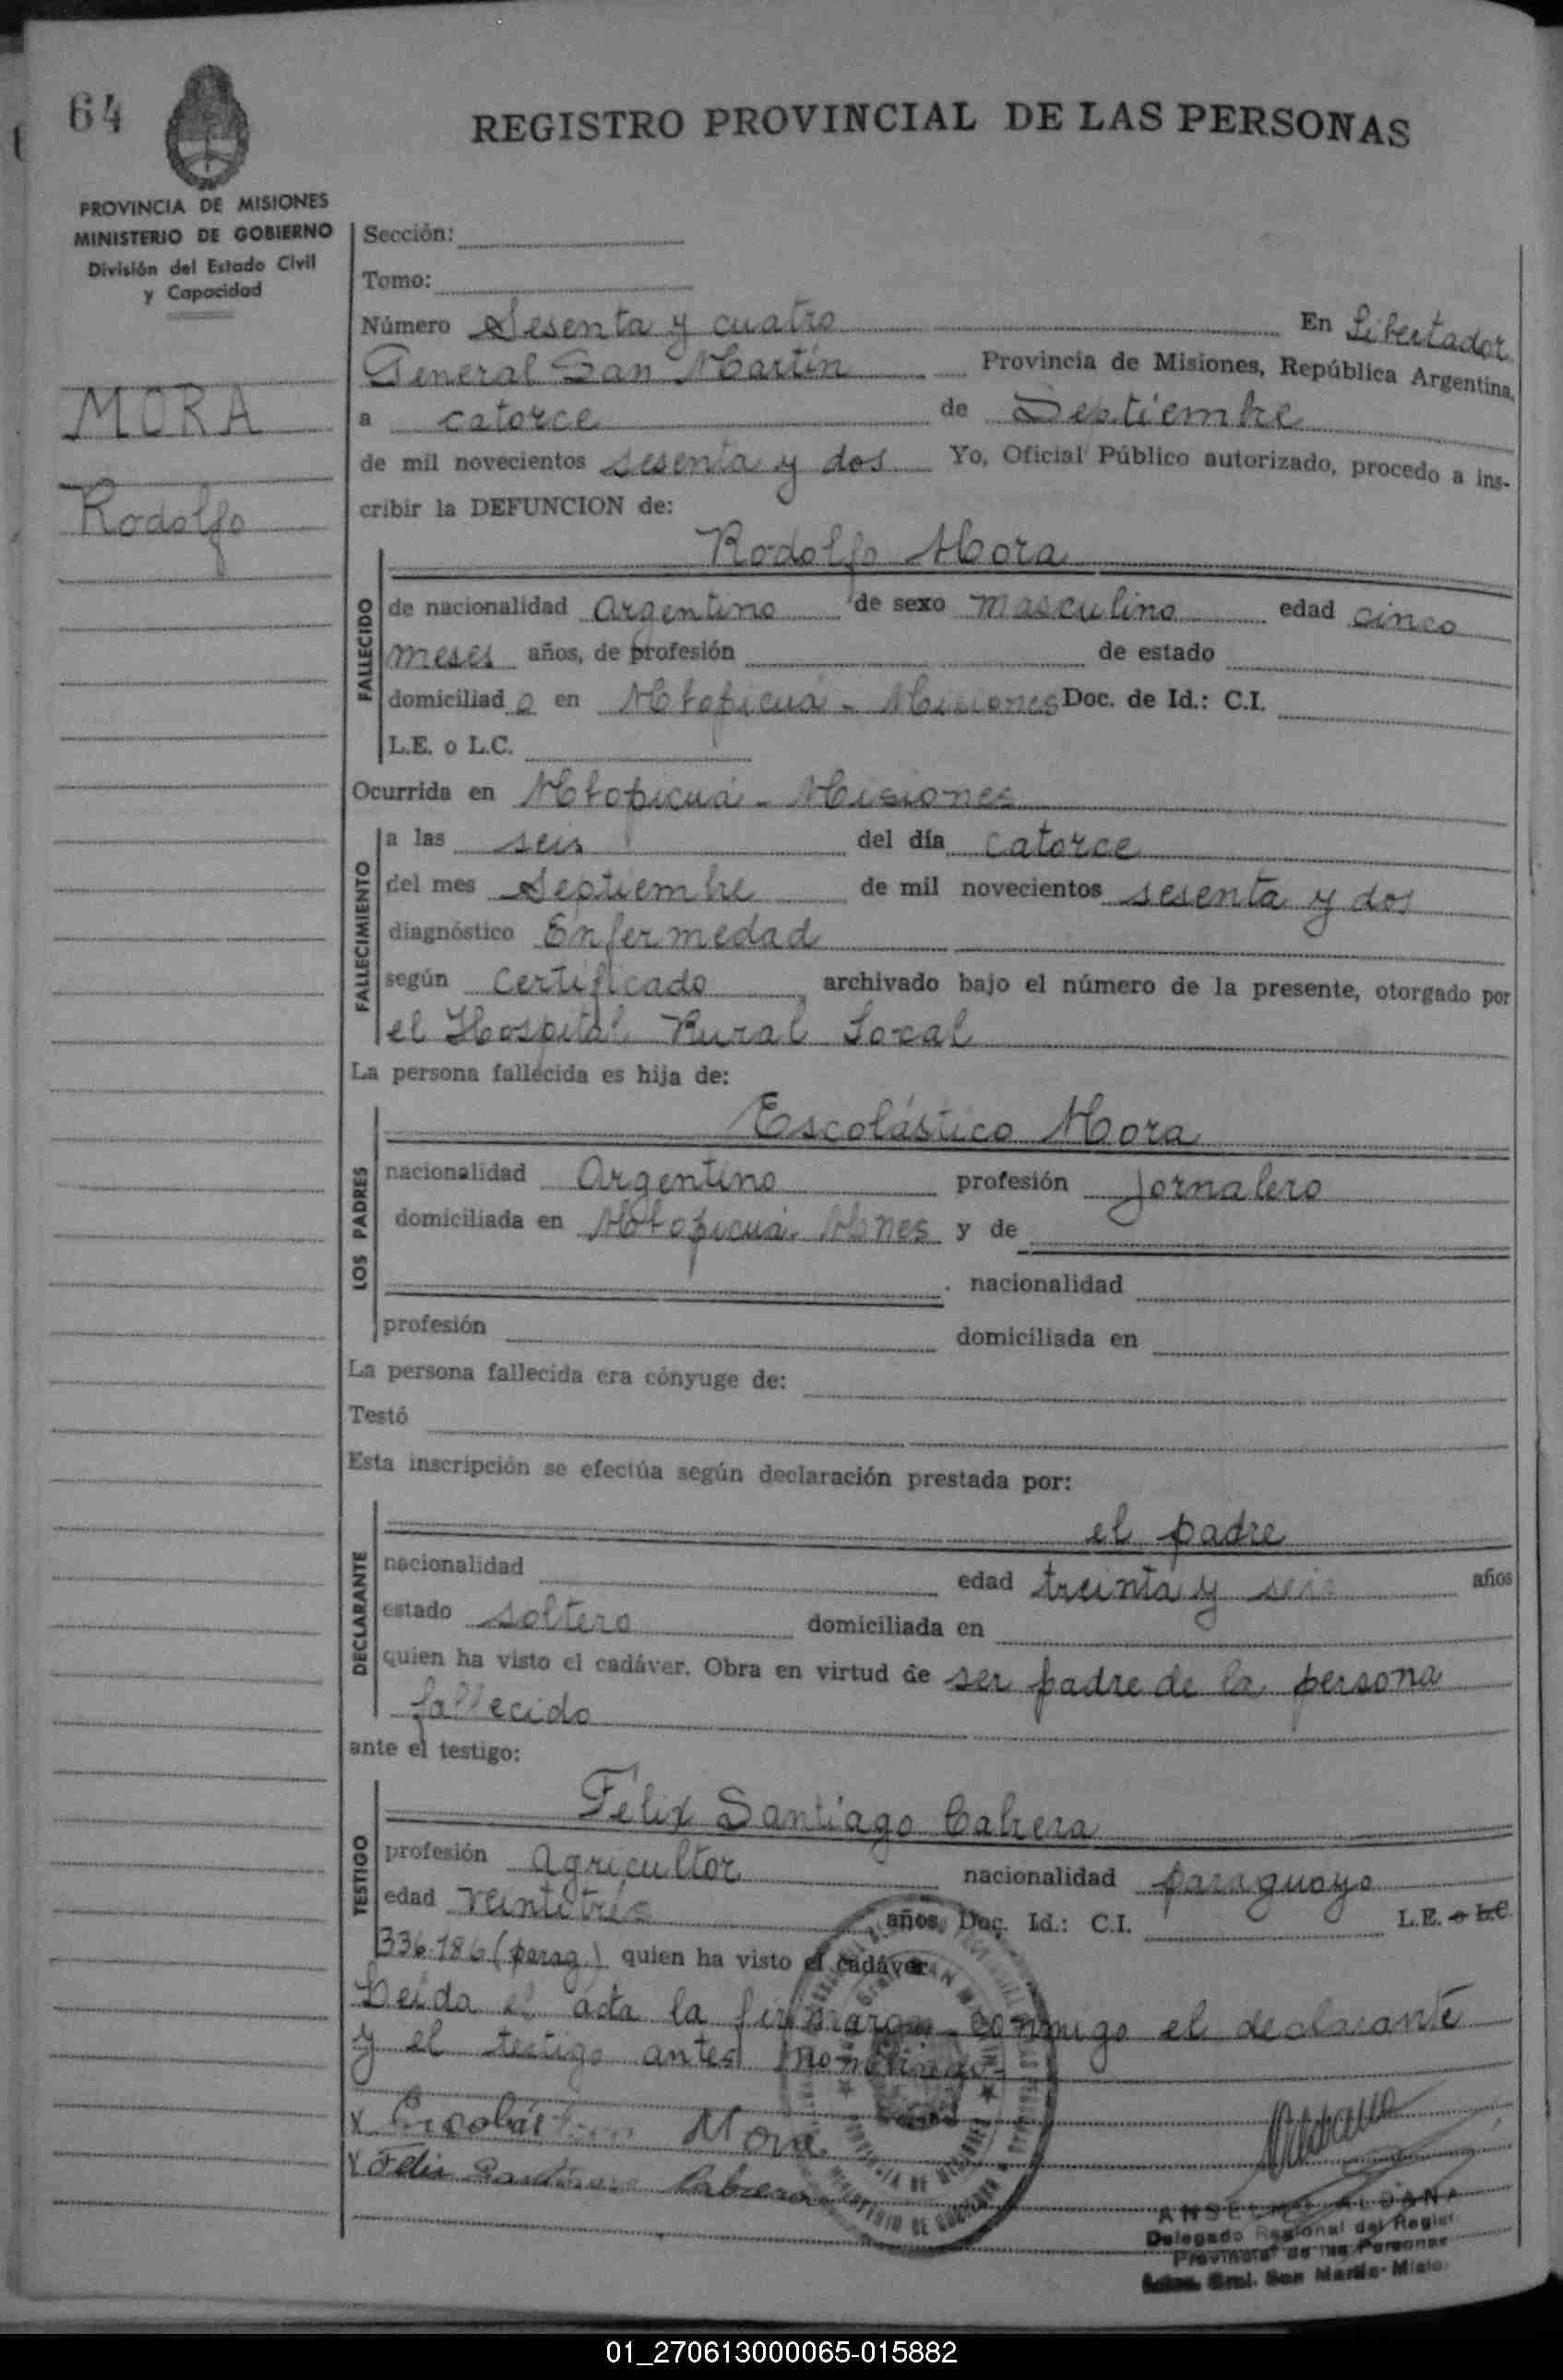 64
REGISTRO PROVINCIAL DE LAS PERSONAS
PROVINCIA DE MISIONES
MINISTERIO DE GOBIERNO
División del Estado Civil
y Capacidad
MORA
Rodolfo
Sección:
Tomo:
Número Sesenta y cuatro En Libertador
General San Martín Provincia de Misiones, República Argentina,
a catorce de Septiembre
de mil novecientos sesenta y dos Yo, Oficial Público autorizado, procedo a ins-
cribir la DEFUNCION de:
Rodolfo Mora
FALLECIDO
de nacionalidad argentino de sexo masculino edad cinco
meses años, de profesión de estado
domiciliad o en Mtopicuá - Misiones Doc. de Id.: C.I.
L.E. o L.C.
Ocurrida en Mtopicuá - Misiones
FALLECIMIENTO
a las seis del día catorce
del mes Septiembre de mil novecientos sesenta y dos
diagnóstico Enfermedad
según Certificado, archivado bajo el número de la presente, otorgado por
el Hospital Rural Local
La persona fallecida es hija de:
LOS PADRES
Escolástico Mora
nacionalidad Argentino profesión Jornalero
domiciliada en Mtopicuá. Mnes y de
nacionalidad
profesión domiciliada en
La persona fallecida era cónyuge de:
Testó
Esta inscripción se efectúa según declaración prestada por:
DECLARANTE
el padre
nacionalidad edad treinta y seis años
estado soltero domiciliada en
quien ha visto el cadáver. Obra en virtud de ser padre de la persona
fallecido
ante el testigo:
TESTIGO
Félix Santiago Cabrera
profesión agricultor nacionalidad paraguayo
edad veintitrés años, Doc. Id.: C.I. L.E. o L.C.
336.186 (parag.) quien ha visto el cadáver
Leída el acta la firmaron conmigo el declarante
y el testigo antes
x Escolástico Mora
x Felix Santiago Cabrera
PROVINCIA DE MISIONES
MINISTERIO DE GOBIERNO
ANSELMO ALDANA
Delegado Regional del Regist
Provincial de las Personas
Gral. San Martín - Misio
01_270613000065-015882